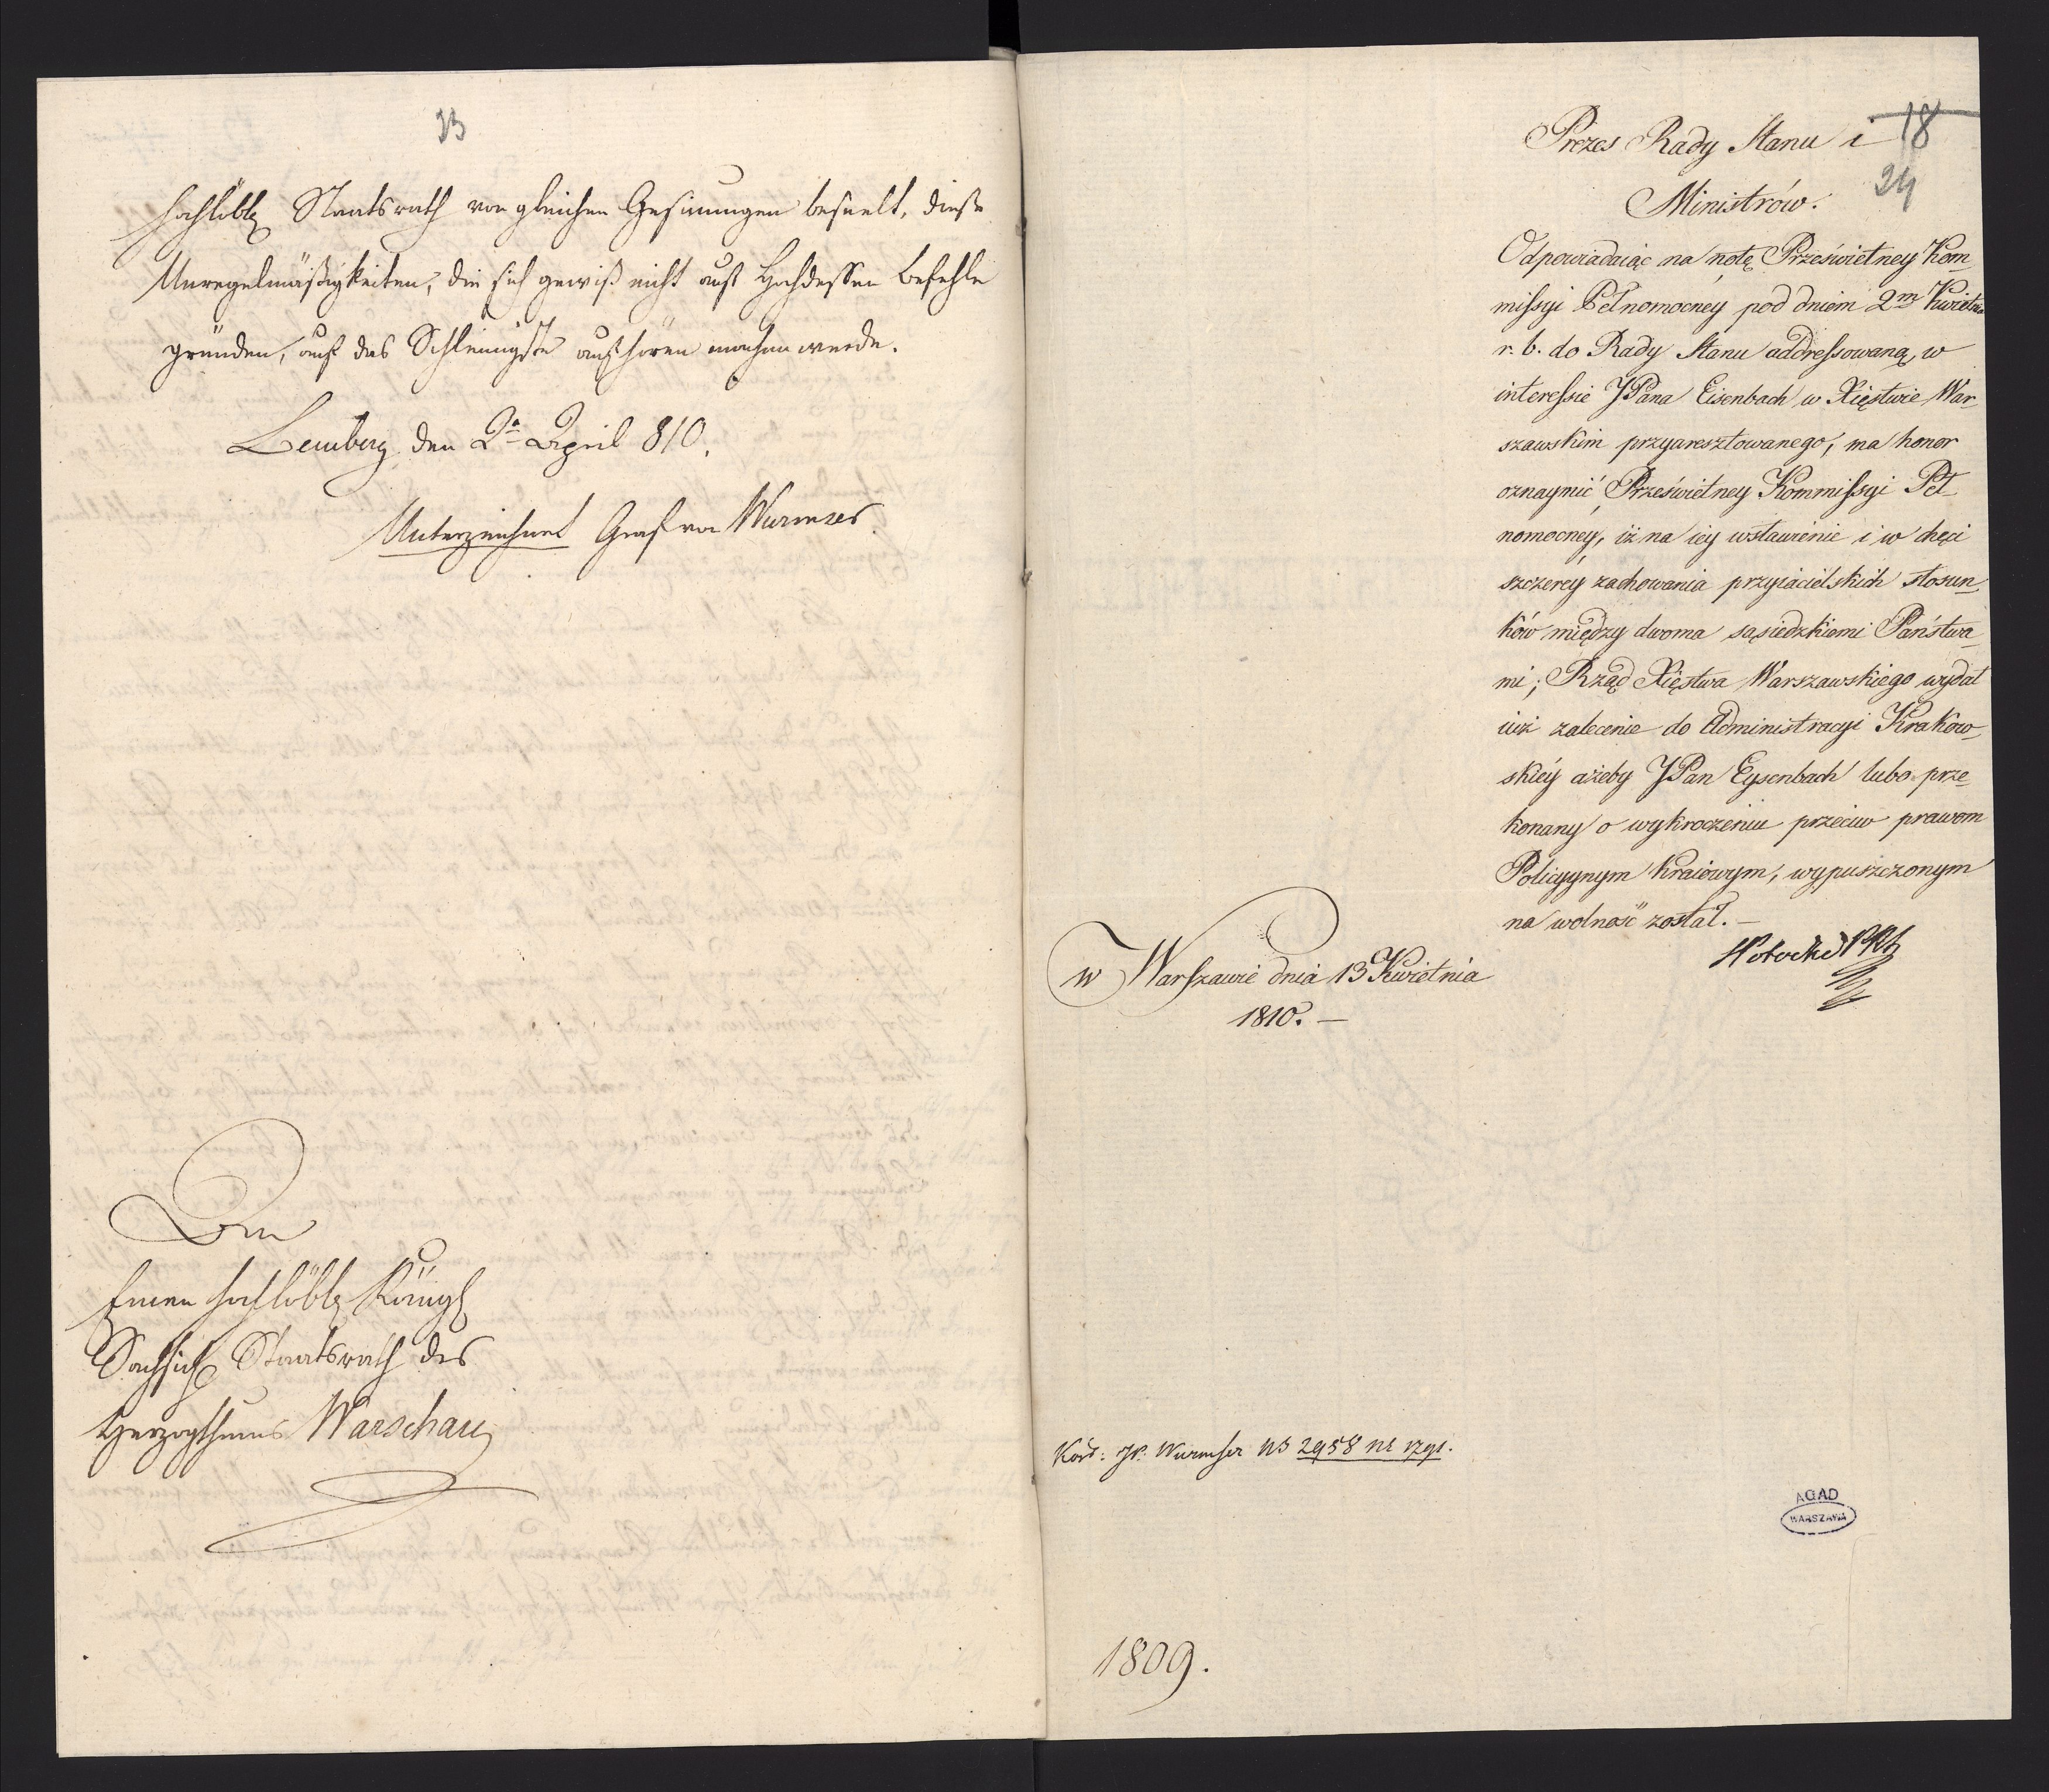 23
hochlöbl. Staatsrath von gleichen Gesinnungen beseelt, diese
Unregelmäßigkeiten, die sich gewiß nicht auf Hochdessen Befehle
gründen, auf das Schleunigste aufhören machen werde.
Lemberg den 2n April 810.
Unterzeichnet Graf von Wurmser
An
Einen hochlöbl. Königl.
Sächsisch. Staatsrath des
Herzogthums Warschau
18
24
Prezes Rady Stanu i
Ministrów.
Odpowiadaiąc na notę Prześwietney Kom-
missyi Pełnomocney pod dniem 2m Kwietnia
r. b. do Rady Stanu addressowaną, w
interessie JPana Eisenbach w Xięstwie War-
szawskim przyaresztowanego, ma honor
oznaymić Prześwietney Kommissyi Peł-
nomocney, iż na iey wstawienie i w chęci
szczerey zachowania przyiacielskich stosun-
ków między dwoma sąsiedzkiemi Państwa-
mi; Rząd Xięstwa Warszawskiego wydał
iuż zalecenie do Administracyi Krakow-
skiéy ażeby JPan Eysenbach lubo prze-
konany o wykroczeniu przeciw prawom
Policyynym kraiowym, wypuszczonym
na wolność został. —
w Warszawie dnia 13 Kwietnia
1810. —
Kor: JP. Wurmser NS 2958 nr 1791.
AGAD
WARSZAWA
1809.